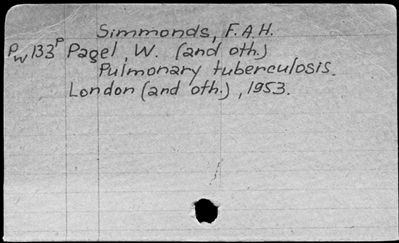 Simmonds, F.A.H.
PW133P Pagel, W. (and oth.)
Pulmonary tuberculosis.
London (and oth.), 1953.